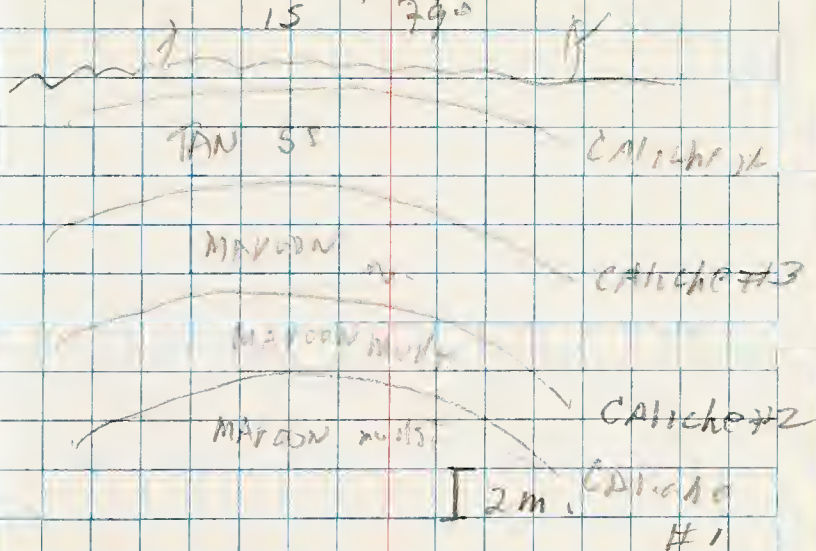 15 79°
TAN SS
CAliche
MAROON
CAliche #3
MAROON
CAliche #2
MAROON mudst
2 m.
CAliche
#1